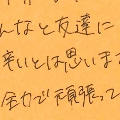 んなと友達に
辛いとは思います
全力で頑張って